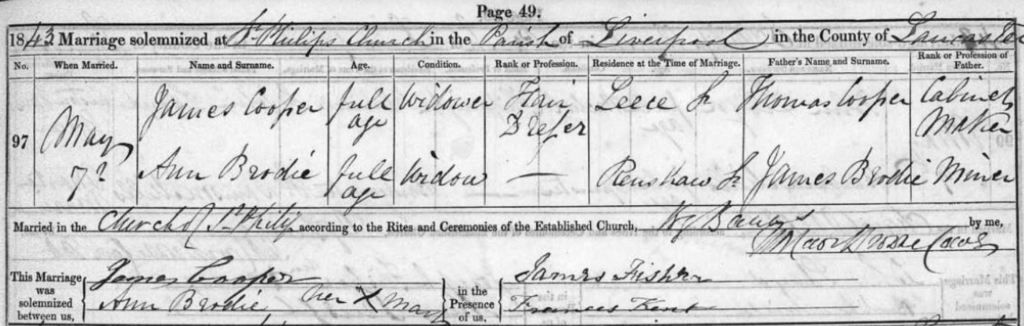 Page 49.
1843 Marriage solemnized at St Philips Church in the Parish of Liverpool in the County of Lancaster
No. When Married. Name and Surname. Age. Condition. Rank or Profession. Residence at the Time of Marriage. Father's Name and Surname. Rank or Profession of Father.
97 May 7th James Cooper full age Widower Hair Dresser Leece St Thomas Cooper Cabinet Maker
Ann Brodie full age Widow — Renshaw St James Brodie Miner
Married in the Church of St Philip according to the Rites and Ceremonies of the Established Church, by Banns by me,
This Marriage was solemnized between us, James Cooper
Ann Brodie her X Mark
in the Presence of us, James Fisher
Frances Kent